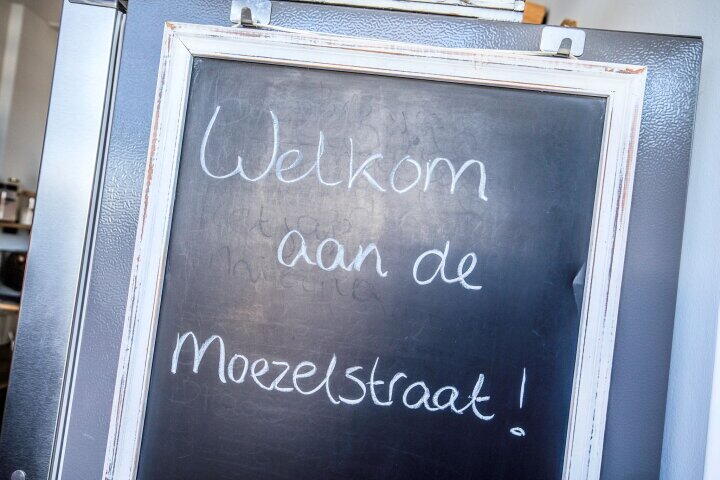 Welkom
aan de
Moezelstraat!